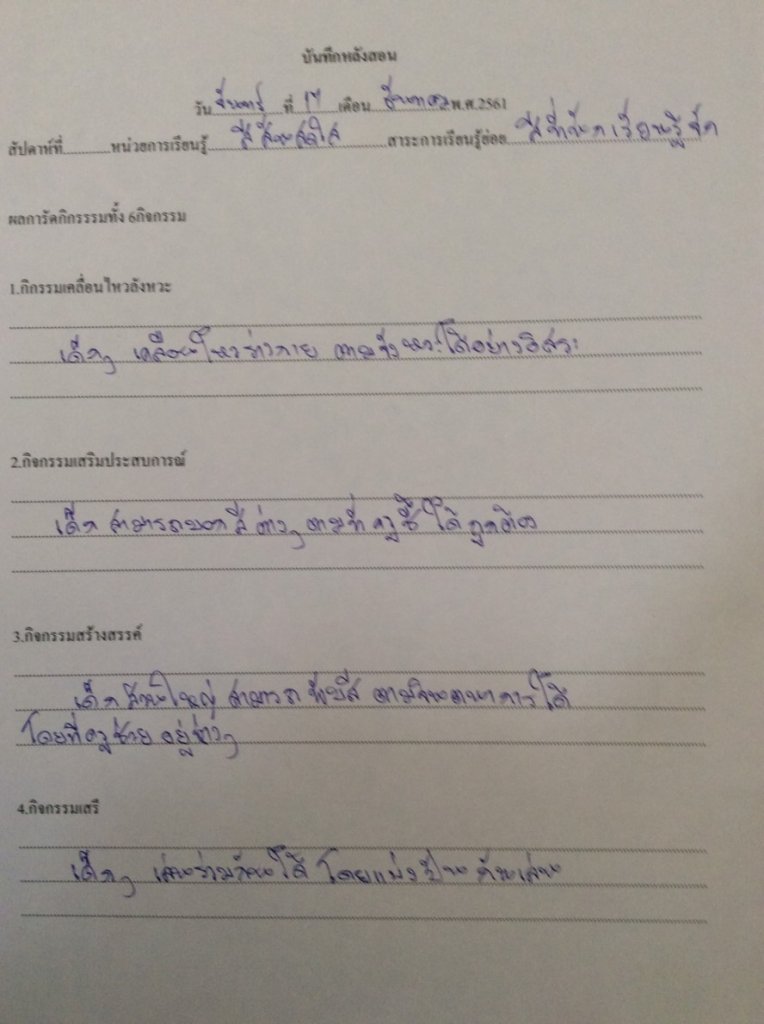 บันทึกหลังสอน
วัน จันทร์ ที่ 17 เดือน ธันวาคม พ.ศ.2561
สัปดาห์ที่............หน่วยการเรียนรู้ สีสันสดใส สาระการเรียนรู้ย่อย สีที่เด็กเรียนรู้จัก
ผลการัดกิกรรรมทั้ง 6กิจกรรม
1.กิกรรมเคลื่อนไหวลังหวะ
เด็กๆ เคลื่อนไหวร่างกาย ตามจังหวะได้อย่างอิสระ
2.กิจกรรมเสริมประสบการณ์
เด็ก สามารถบอกสี ต่างๆ ตามที่ ครูชี้ ได้ ถูกต้อง
3.กิจกรรมสร้างสรรค์
เด็ก ส่วนใหญ่ สามารถ ตามจินตนาการได้
โดยที่ครูช่วย อยู่ห่างๆ
4.กิจกรรมเสรี
เด็กๆ เล่นร่วมกันได้ โดยแบ่งปัน กันเล่น